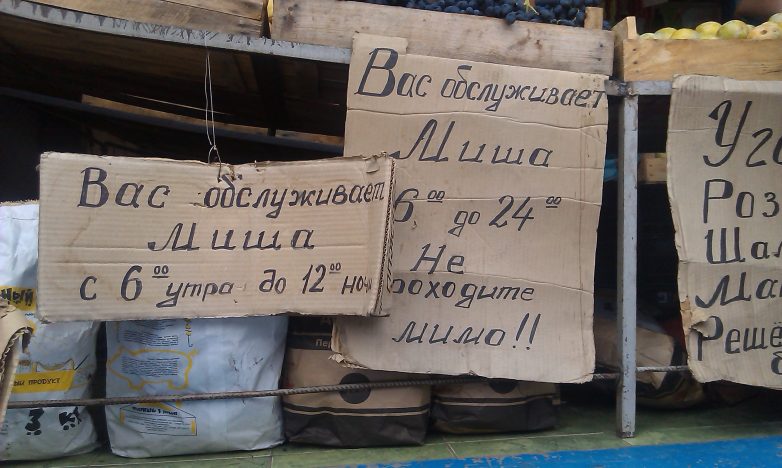 Вас обслуживает
Миша
с 6 00 утра до 12 00 ночи
Вас обслуживает
Миша
6 00 до 24 00
Не
проходите
мимо!!
Уг
Роз
Шаш
Ма
Реше
ный
ый продукт
3 кг